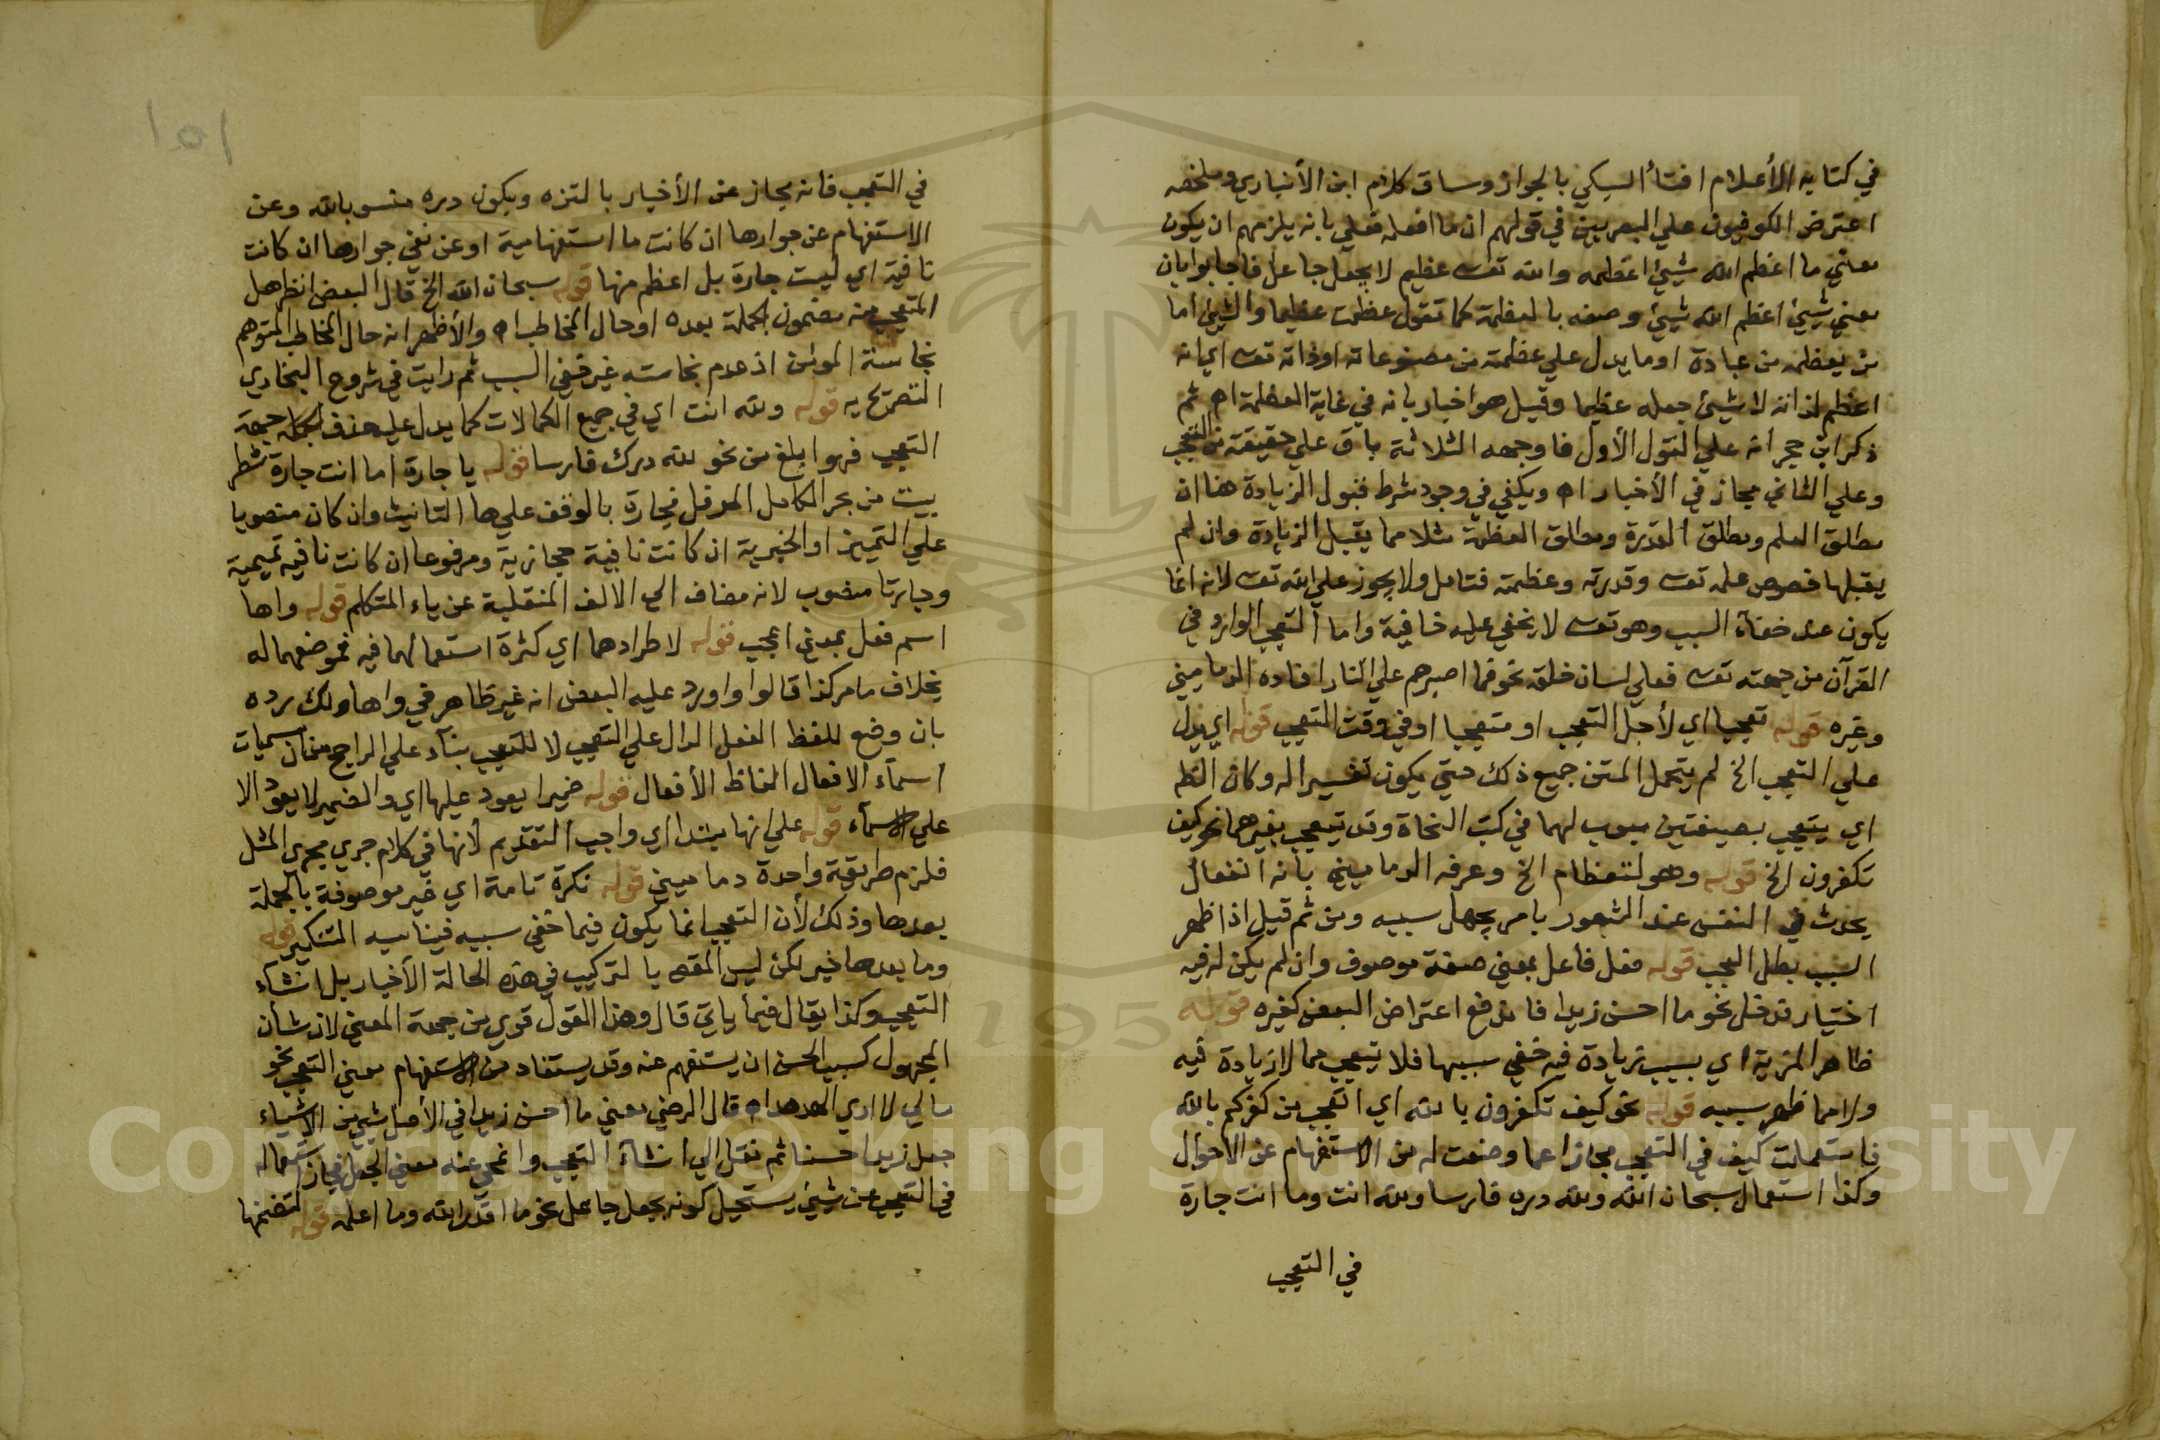 في كتابه الأعلام افتأ السبكي بالجواز وساق كلام ابن الأنباري وملخصه
اعترض الكوفيون علي البصريين في قولهم ان ما افعله فعلي بانه يلزمهم ان يكون
معني ما اعظم الله شيئ اعظمه والله تعـ عظيم لا بجعل جاعل فاجابوا بان
معني شيئ اعظم الله شيئ وصفه بالعظمة كما تقول عظمت عظيما والشيئ اما
من يعظمه من عباده او ما يدل علي عظمته من مصنوعاته او ذاته تعـ اي انه
اعظم لذاته لا شيئ جعله عظيما وقيل هو اخبار بانه في غاية العظمة اه ثم
ذكر ابن حجر انه علي القول الأول فاوجهه الثلاثة باق علي حقيقته من التعجب
وعلي الثاني مجاز في الأخبار اه ويكفي في وجود شرط قبول الزيادة هنا ان
مطلق العلم ومطلق القدرة ومطلق العظمة مثلا مما يقبل الزيادة وان لم
يقبلها خصوص علمه تعـ وقدرته وعظمته فتامل ولا يجوز علي الله تعـ لانه انما
يكون عند خفاء السبب وهو تعـ لا يخفي عليه خافية واما التعجب الوارد في
القرآن من جهته تعـ فعلي لسان خلقه نحو فما اصبرهم علي النار افاده الدماميني
وغيره قوله تعجبا اي لأجل التعجب او متعجبا او في وقت التعجب قوله اي يدل
علي التعجب الخ لم يتحمل المتن جميع ذلك حتي يكون تفسيرا له وكان النظم
اي يتعجب بصيغتين مبوب لهما في كتب النحاة وقد تيعجب بغيرهما نحو كيف
تكفرون الخ قوله وهو استعظام الخ وعرفه الدماميني بانه انفعال
يحدث في النفس عند الشعور بامر يجهل سببه ومن ثم قيل اذا ظهر
السبب بطل العجب قوله فعل فاعل بمعني صفة موصوف وان لم يكن له فيه
اختيار فدخل نحو ما احسن زيدا فاندفع اعتراض البعض كغيره قوله
ظاهر المزية اي بسبب زيادة فيه خفي سببها فلا تيعجب مما لا زيادة فيه
ولا مما ظهر سببه قوله نحو كيف تكفرون بالله اي اتعجب من كفركم بالله
فاستعملت كيف في التعجب مجازا عما وضعت له من الاستفهام عن الاحوال
وكذا استعمال سبحان الله ولله دره فارسا ولله انت وما انت جارة
في التعجب
١٥١
في التعجب فانه مجاز عن الأخبار بالتنزه ويكون دره منسوبا لله وعن
الاستفهام عن جوارها ان كانت ما استفهامية او عن نفي جوارها ان كانت
نافية اي ليست جارة بل اعظم منها قوله سبحان الله الخ قال البعض انظر هل
المتعجب منه مضمون الجملة بعده او حال المخاطب اه والأظهر انه حال المخاطب المتوهم
نجاسة المومن اذ عدم نجاسته غير خفي السبب ثم رايت في شروح البخاري
التصريح به قوله ولله انت اي في جميع الكمالات كما يدل عليه حذف الجملة جهة
التعجب فهو ابلغ من نحو لله درك فارسا قوله يا جارة اما انت جارة شطر
بيت من بحر الكامل المرفل فجارة بالوقف علي ها التانيث وان كان منصوبا
علي التمييز او الخبرية ان كانت نافية حجازية ومرفوعا ان كانت نافيه تميمية
وجارتا منصوب لانه مضاف الي الالف المنقلبة عن ياء المتكلم قوله واها
اسم فعل بمعني اعجب قوله لاطرادهما اي كثرة استعمالهما فيه فموضعهما له
بخلاف ما مر كذا قالوا واورد عليه البعض انه غير ظاهر في واها ولك رده
بان وضع للفظ الفعل الدال علي التعجب لا للتعجب بنآء علي الراجح من ان مسميات
اسمآء الافعال الفاظ الأفعال قوله ضميرا يعود عليها اي والضمير لا يعود الا
علي الاسمآء قوله علي انها مبتدا اي واجب التقديم لأنها في كلام جري مجري المثل
فلزم طريقة واحدة دماميني قوله نكرة تامة اي غير موصوفة بالجملة
بعدها وذلك لأن التعجب انما يكون فيما خفي سببه فيناسبه التنكير قوله
وما بعدها خبر لكن ليس القصد بالتركيب في هذه الحالة الأخبار بل انشاء
التعجب وكذا يقال فيما ياتي قال وهذا القول قوي من جهة المعني لان شأن
المجهول كسبب الحسن ان يستفهم عنه وقد يستفاد من الاستفهام معني التعجب نحو
مالي لا اري الهدهد اه قال الرضي معني ما احسن زيدا في الأصل شيئ من الاشياء
جعل زيدا حسنا ثم نقل الي انشآء التعجب وانمحي عنه معني الجعل فجاز استعماله
في التعجب عن شيئ يستحيل كونه بجعل جاعل نحو ما اقدر الله وما اعلمه قوله لتضمنها
Copyright © King Saud University
195